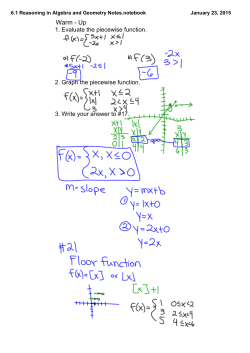 6.1 Reasoning in Algebra and Geometry Notes.notebook
January 23, 2015
Warm - Up
1. Evaluate the piecewise function.
f(x)={5x+1 x≤1
-2x x>1
a) f(-2)
5x+1 -2≤1
-9
b) f(3)
-2x
3>1
-6
2. Graph the piecewise function.
f(x)={x+1 x≤2
|x| 2<x≤4
3 x>4
3. Write your answer to #17.
x+1
|x|
3
x y
open
f(x)={x, x≤0
2x, x>0
m=slope
y=mx+b
① y=1x+0
y=x
② y=2x+0
y=2x
#21
Floor function
f(x)=[x] or ⌊x⌋
[x]+1
f(x)={1 0≤x<2
3 2≤x<4
5 4≤x<6